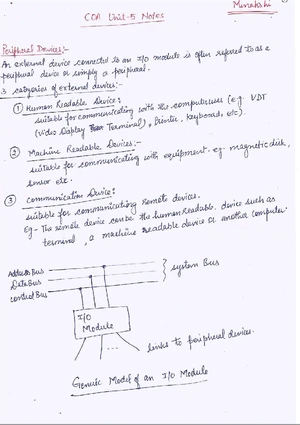 Minakshi
COA Unit-5 Notes
Peripheral Devices:-
An external device connected to an I/O module is often referred to as a
peripheral device or simply a peripheral.
3 categories of external devices:-
① Human Readable Device:
suitable for communicating with the computer user (e.g. VDT
(Video Display Terminal), Printer, keyboard, etc).
② Machine Readable Devices:-
suitable for communicating with equipment. eg. magnetic disk,
sensor etc.
③ Communication Device:
suitable for communicating Remote devices.
Eg- The remote device can be the human readable device such as
terminal, a machine readable device or another computer.
Address Bus
Data Bus
control Bus
system Bus
I/O
Module
links to peripheral devices.
Generic Model of an I/O Module